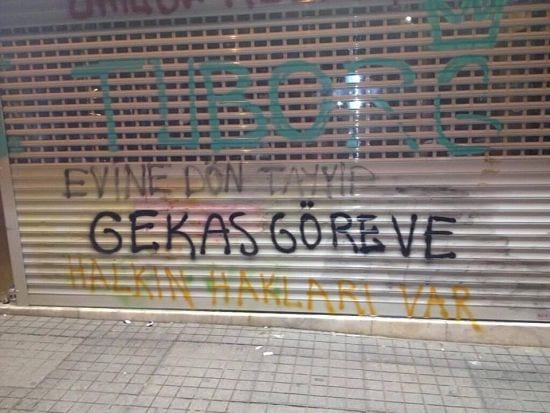 TUBORG
EVINE DÖN TAYYIP
GEKAS GÖREVE
HALKIN HAKLARI VAR